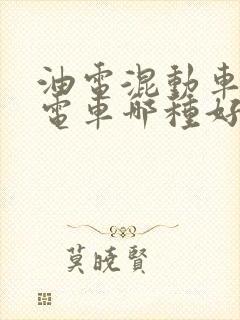 油電混動車
電車哪種好
莫曉賢